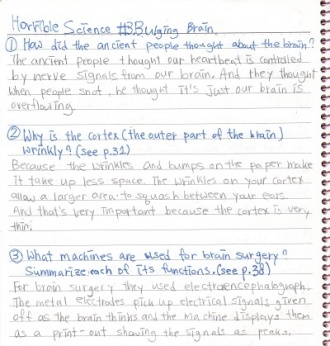 Horrible Science #3 Bulging Brain.
① How did the ancient people thought about the brain?
The ancient people thought our heartbeat is controlled
by nerve signals from our brain. And they thought
when people snot, he thought it's just our brain is
overflowing.
② Why is the cortex (the outer part of the brain)
wrinkly? (see p.31)
Because the wrinkles and bumps on the paper make
it take up less space. The wrinkles on your cortex
allow a larger area to squash between your ears.
And that's very important because the cortex is very
thin.
③ What machines are used for brain surgery?
Summarize each of its functions. (see p.38)
For brain surgery they used electroencephalograph.
The metal electrodes pick up electrical signals given
off as the brain thinks and the machine displays them
as a print-out showing the signals as peaks.